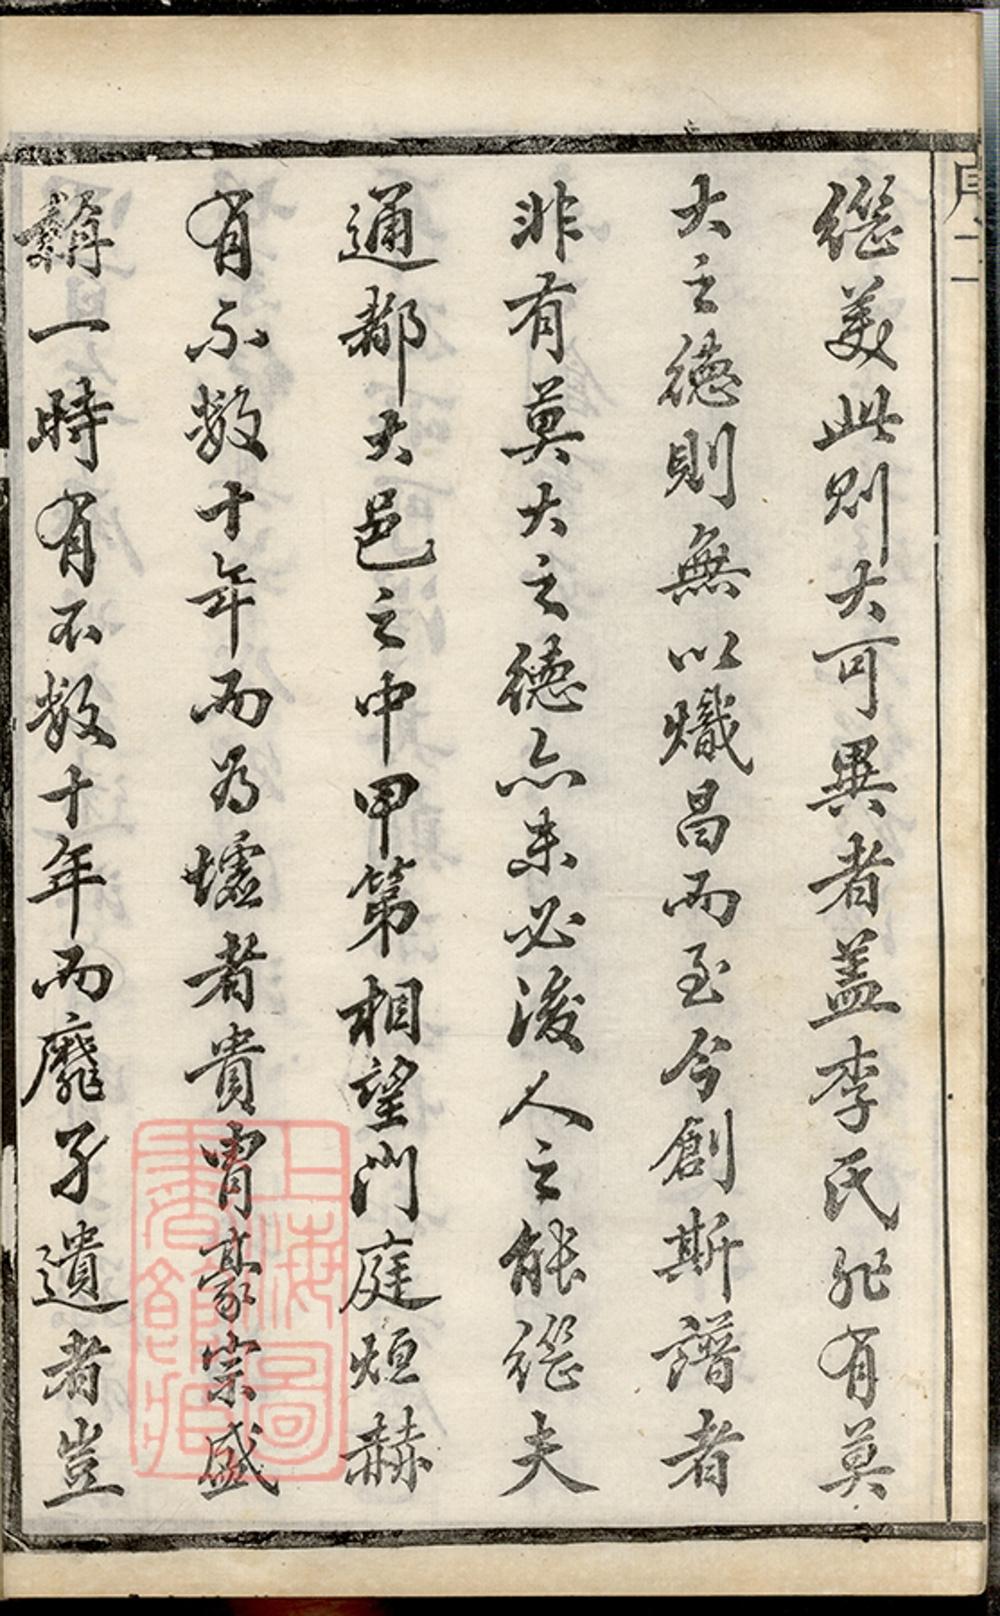 繼美此則大可異者蓋李氏非有莫
大之德則無以熾昌而至今創斯譜者
非有莫大之德亦未必後人之能繼夫
通都大邑之中甲第相望門庭烜赫
有不數十年而為墟者貴胄豪宗盛
稱一時有不數十年而靡孑遺者豈
上海圖
書館藏